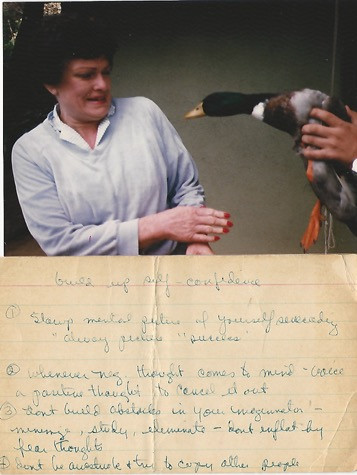 build up self-confidence
① Stamp mental picture of yourself succeeding
"always picture "success"
② whenever neg. thought comes to mind - voice
a positive thought to cancel it out
③ dont build obstacles in your imagination -
minimize, study, eliminate - dont inflate by
fear thoughts
④ dont be awestruck & try to copy other people